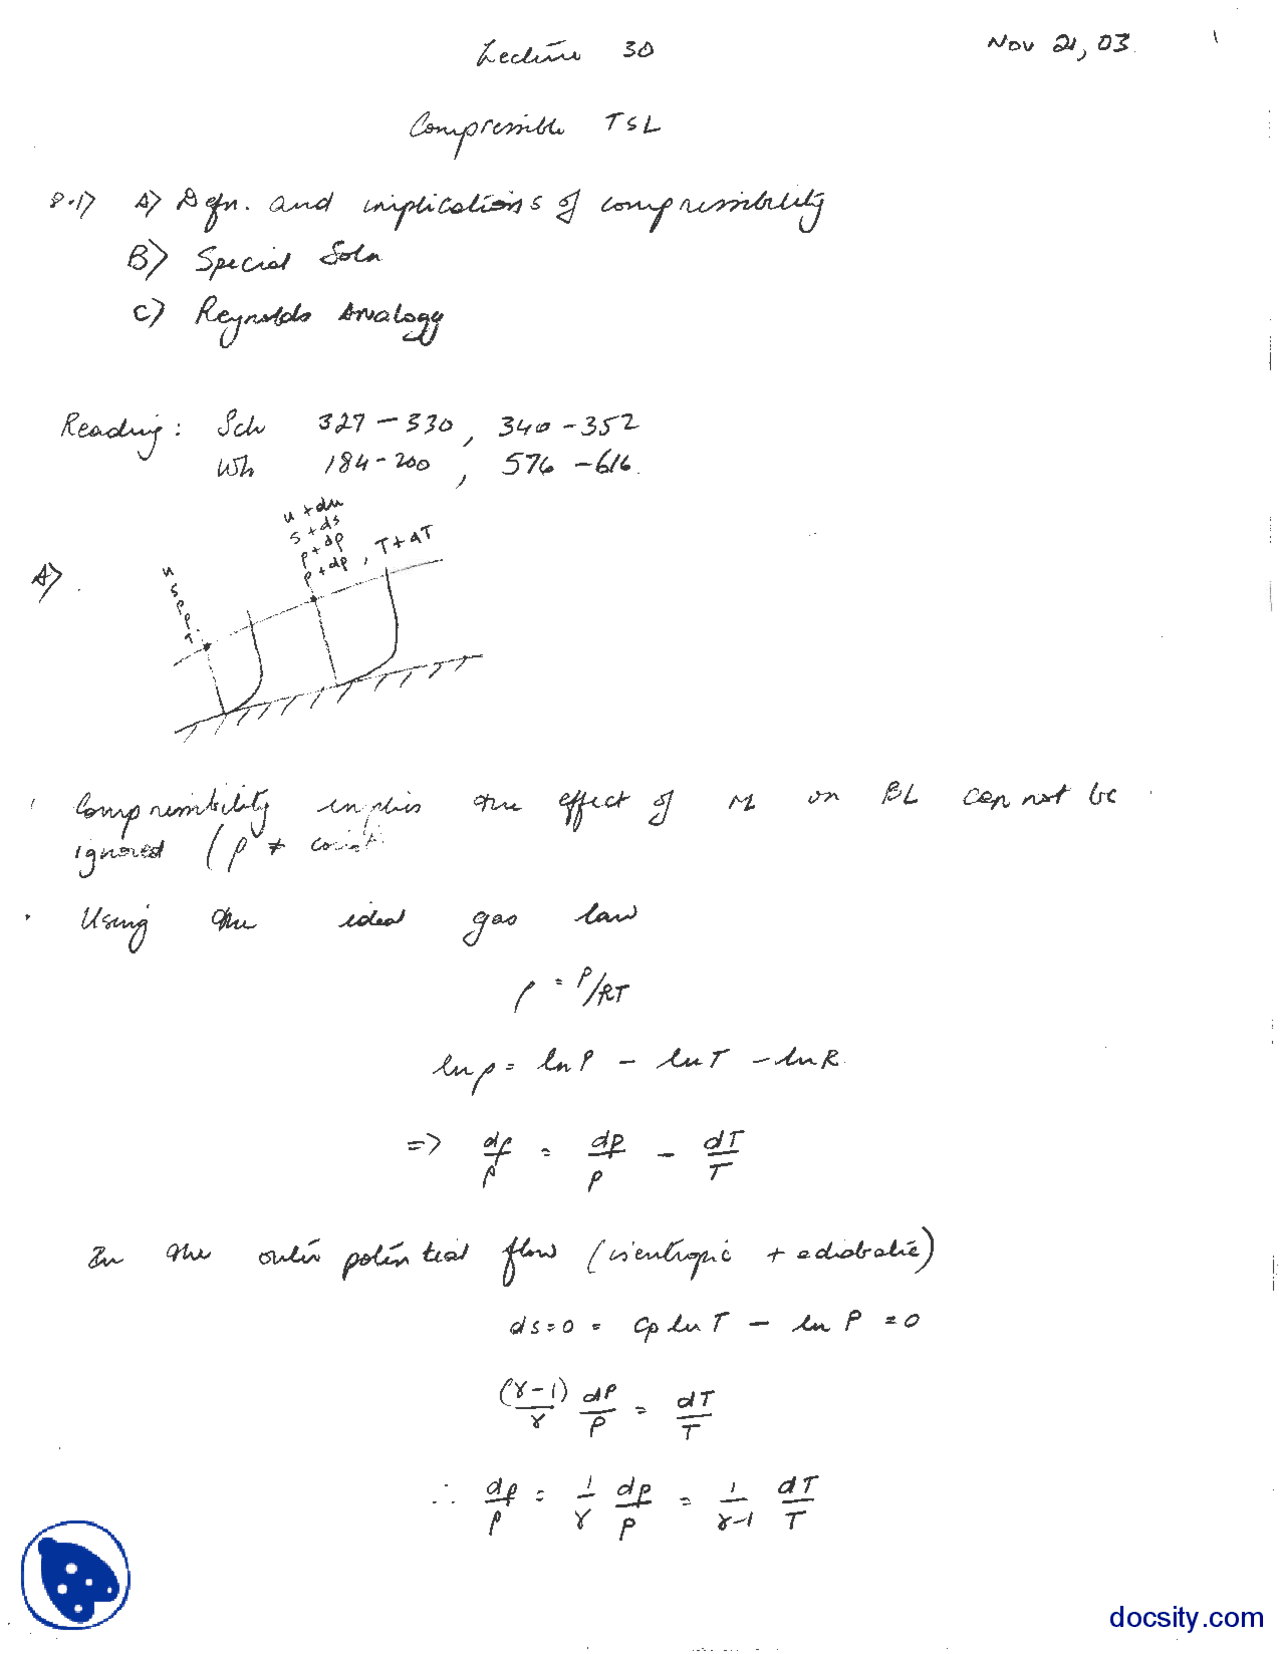 Lecture 30
Nov 21, 03.
1
Compressible TSL
8.1) A) Defn. and implications of compressibility
B) Special Soln
C) Reynolds Analogy
Reading: Sch 327-330, 340-352
Wh 184-200, 576-616.
u+du
s+ds
ρ+dρ
p+dp, T+dT
A)
u
s
ρ
p
T
Compressibility implies the effect of M on BL can not be
ignored (ρ ≠ const
· Using the ideal gas law
ρ = P/RT
lnρ = lnP - lnT - lnR
=> dρ/ρ = dP/P - dT/T
In the outer potential flow (isentropic + adiabatic)
ds=0 = Cp ln T - ln P = 0
(γ-1)/γ dP/P = dT/T
∴ dρ/ρ = 1/γ dp/p = 1/γ-1 dT/T
docsity.com